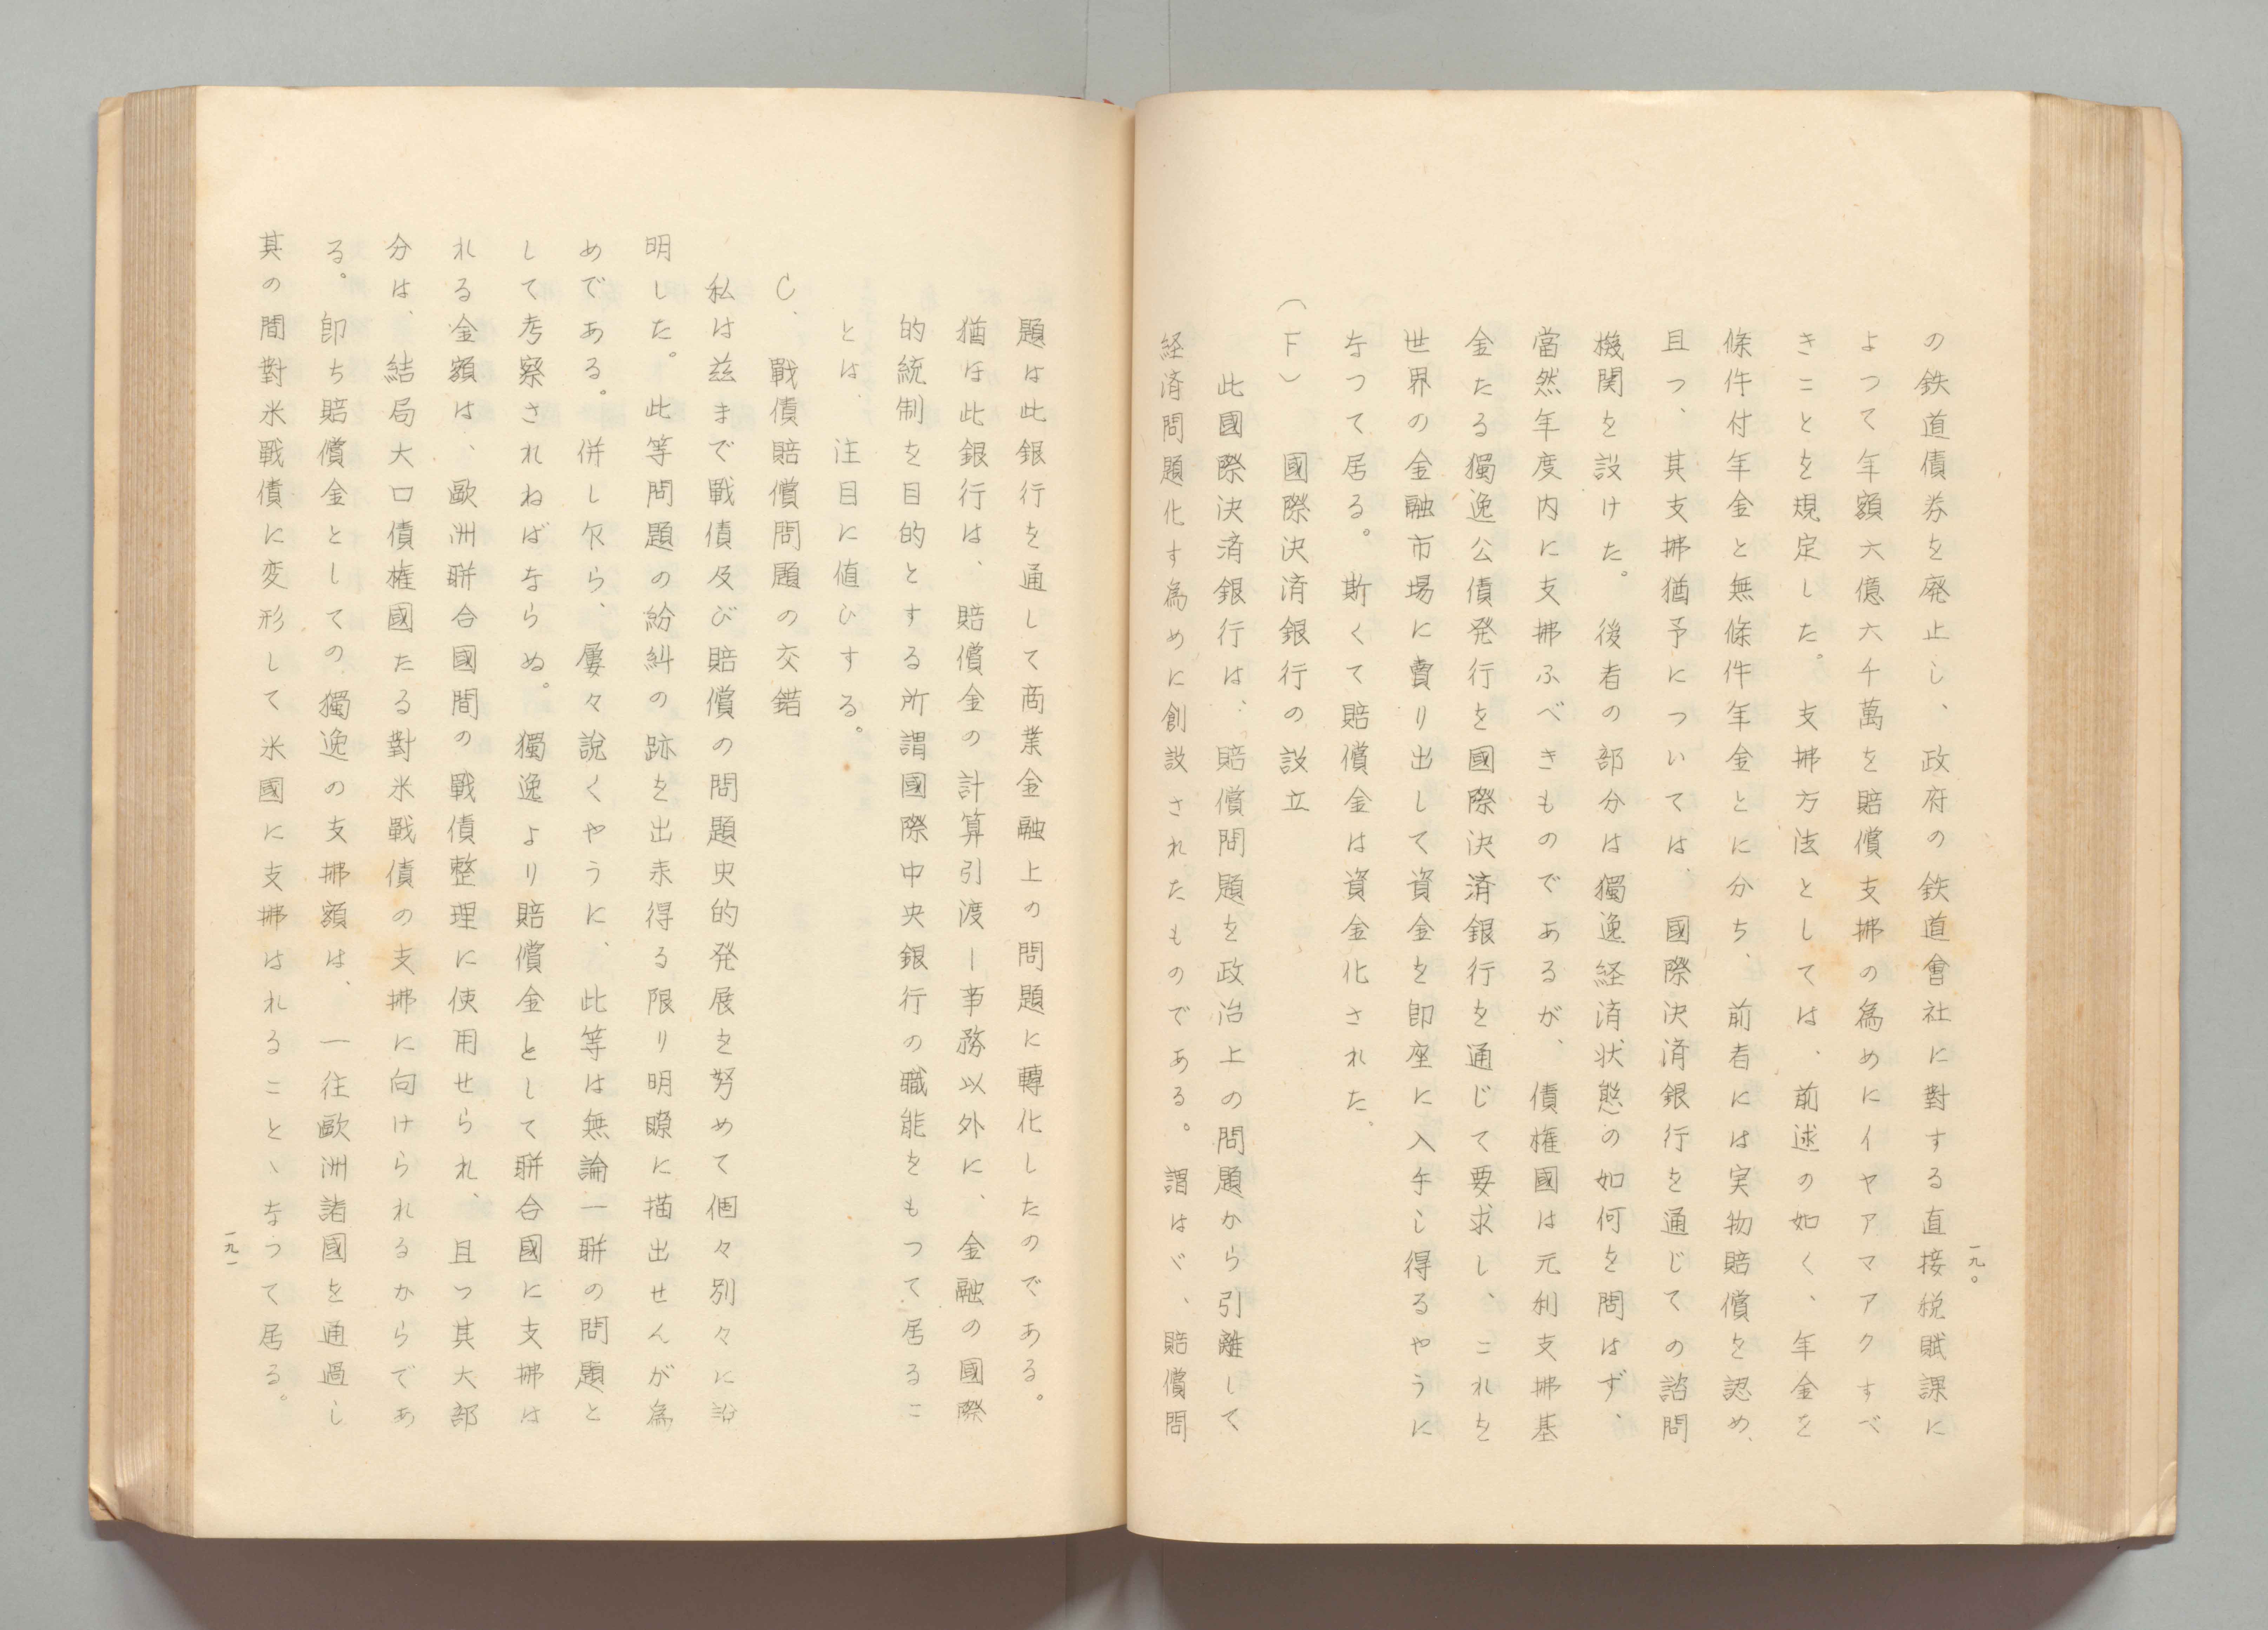 一九〇
の鉄道債券を廃止し、政府の鉄道會社に對する直接税賦課に
よつて年額六億六千萬を賠償支拂の為めにイヤアマアクすべ
きことを規定した。支拂方法としては、前述の如く、年金を
條件付年金と無條件年金とに分ち、前者には実物賠償を認め、
且つ、其支拂猶予については、國際決済銀行を通じての諮問
機関を設けた。後者の部分は獨逸経済状態の如何を問はず、
當然年度内に支拂ふべきものであるが、債権國は元利支拂基
金たる獨逸公債発行を國際決済銀行を通じて要求し、これを
世界の金融市場に賣り出して資金を即座に入手し得るやうに
なつて居る。斯くて賠償金は資金化された。
(F) 國際決済銀行の設立
此國際決済銀行は、賠償問題を政治上の問題から引離して
経済問題化す為めに創設されたものである。謂はゞ、賠償問
題は此銀行を通して商業金融上の問題に轉化したのである。
猶ほ此銀行は、賠償金の計算引渡し事務以外に、金融の國際
的統制を目的とする所謂國際中央銀行の職能をもつて居るこ
とは、注目に値ひする。
C、戰債賠償問題の交錯
私は茲まで戰債及び賠償の問題史的発展を努めて個々別々に説
明した。此等問題の紛糾の跡を出来得る限り明瞭に描出せんが為
めである。併し乍ら、屢々說くやうに、此等は無論一聯の問題と
して考察されねばならぬ。獨逸より賠償金として聯合國に支拂は
れる金額は、歐洲聯合國間の戰債整理に使用せられ、且つ其大部
分は、結局大口債権國たる對米戰債の支拂に向けられるからであ
る。即ち賠償金としての獨逸の支拂額は、一往歐洲諸國を通過し
其の間對米戰債に変形して米國に支拂はれることゝなつて居る。
一九一